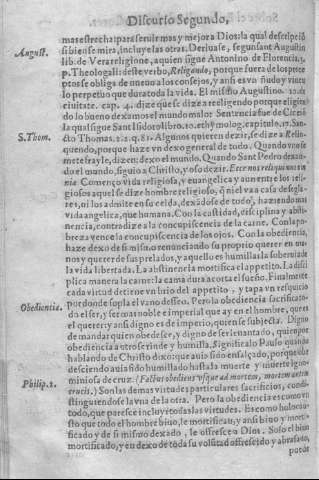 Discurso Segundo,
mas estrecha para servir mas y mejor a Dios: la qual de spec
si bien se mira, incluye las otras. Deriuase, segun sant Augustin
August.
lib. de Vera religione, a quien sigue Antonino de Florencia, 3.
p. Theologali: deste verbo, Religando, porque fuera de los prece
ptos se obliga de nueuo a los consejos, y ansi es vn ñudo y vincu
lo perpetuo que dura toda la vida. El mismo Augustino. 10. de
ciuitate. cap. 4. dize que se dize a reeligendo porque eligien
do lo bueno dexamos el mundo malo: Sentencia fue de Cicerõ
la qual sigue Sant Isidoro libro. 10. ethymolog. capitulo. 17. San-
S. Thom.
cto Thomas. 2. 2. q. 81. Algunos quieren dezir, se dize a Relin
quendo, porque haze vn dexo general de todo. Quando vno se
mete frayle, dizen: dexo el mundo. Quando Sant Pedro dexan-
do el mundo, siguio a Christo, y oso dezir. Ecce nos reliquimus om
nia. Començo vida religiosa, y euangelica y aumente los reli-
giosos aquel se dize hombre religioso, q̃ ni el va a casa de segla-
res, ni los admite en su celda, dexãdose de todo, haziendo mas
vida angelica, que humana. Con la castidad, disciplina y absti-
nencia, contradize a la concupiscencia de la carne. Con la po-
breza vence la concupiscencia de los ojos. Con la obediencia,
haze dexo de si mismo, renunciando su proprio querer en ma-
nos y querer de sus prelados, y aquello es humillar la soberuia de
la vida libertada. La abstinencia mortifica el appetito. La disci
plica manera la carne: la cama dura acorta el sueño. Finalmente
cada virtud detiene vn brio del appetito, y tapa vn resquicio
por donde sopla el vano desseo. Pero la obediencia sacrifican-
Obediencia.
do el ser, y ser mas noble e imperial que ay en el hombre, que es
el querer: y ansi digno es de imperio, quien se subjecta. Digno
de mandar quien obedesce, y digno de ser leuantado, quien por
obediencia a otro se rinde y humilla. Significalo Paulo quando
hablando de Christo dixo: que auia sido ensalçado, porque obe
desciendo auia sido humillado hasta la muerte y muerte igno-
Philip. 2.
miniosa de cruz: (Factus obediens vsque ad mortem, mortem autem
crucis.) Son las demas virtudes particulares sacrificios, condi-
stinguiendose la vna de la otra. Pero la obediencia es como vn
todo, que paresce incluye todas las virtudes. Es como holocau-
sto que todo el hombre biuo, le mortifican; y ansi biuo y morti-
ficado y de si mismo dexado, le offresce a Dios. Solo el biuo
mortificado, y en dexo de toda su volũtad offrescido y abrasado,
podra